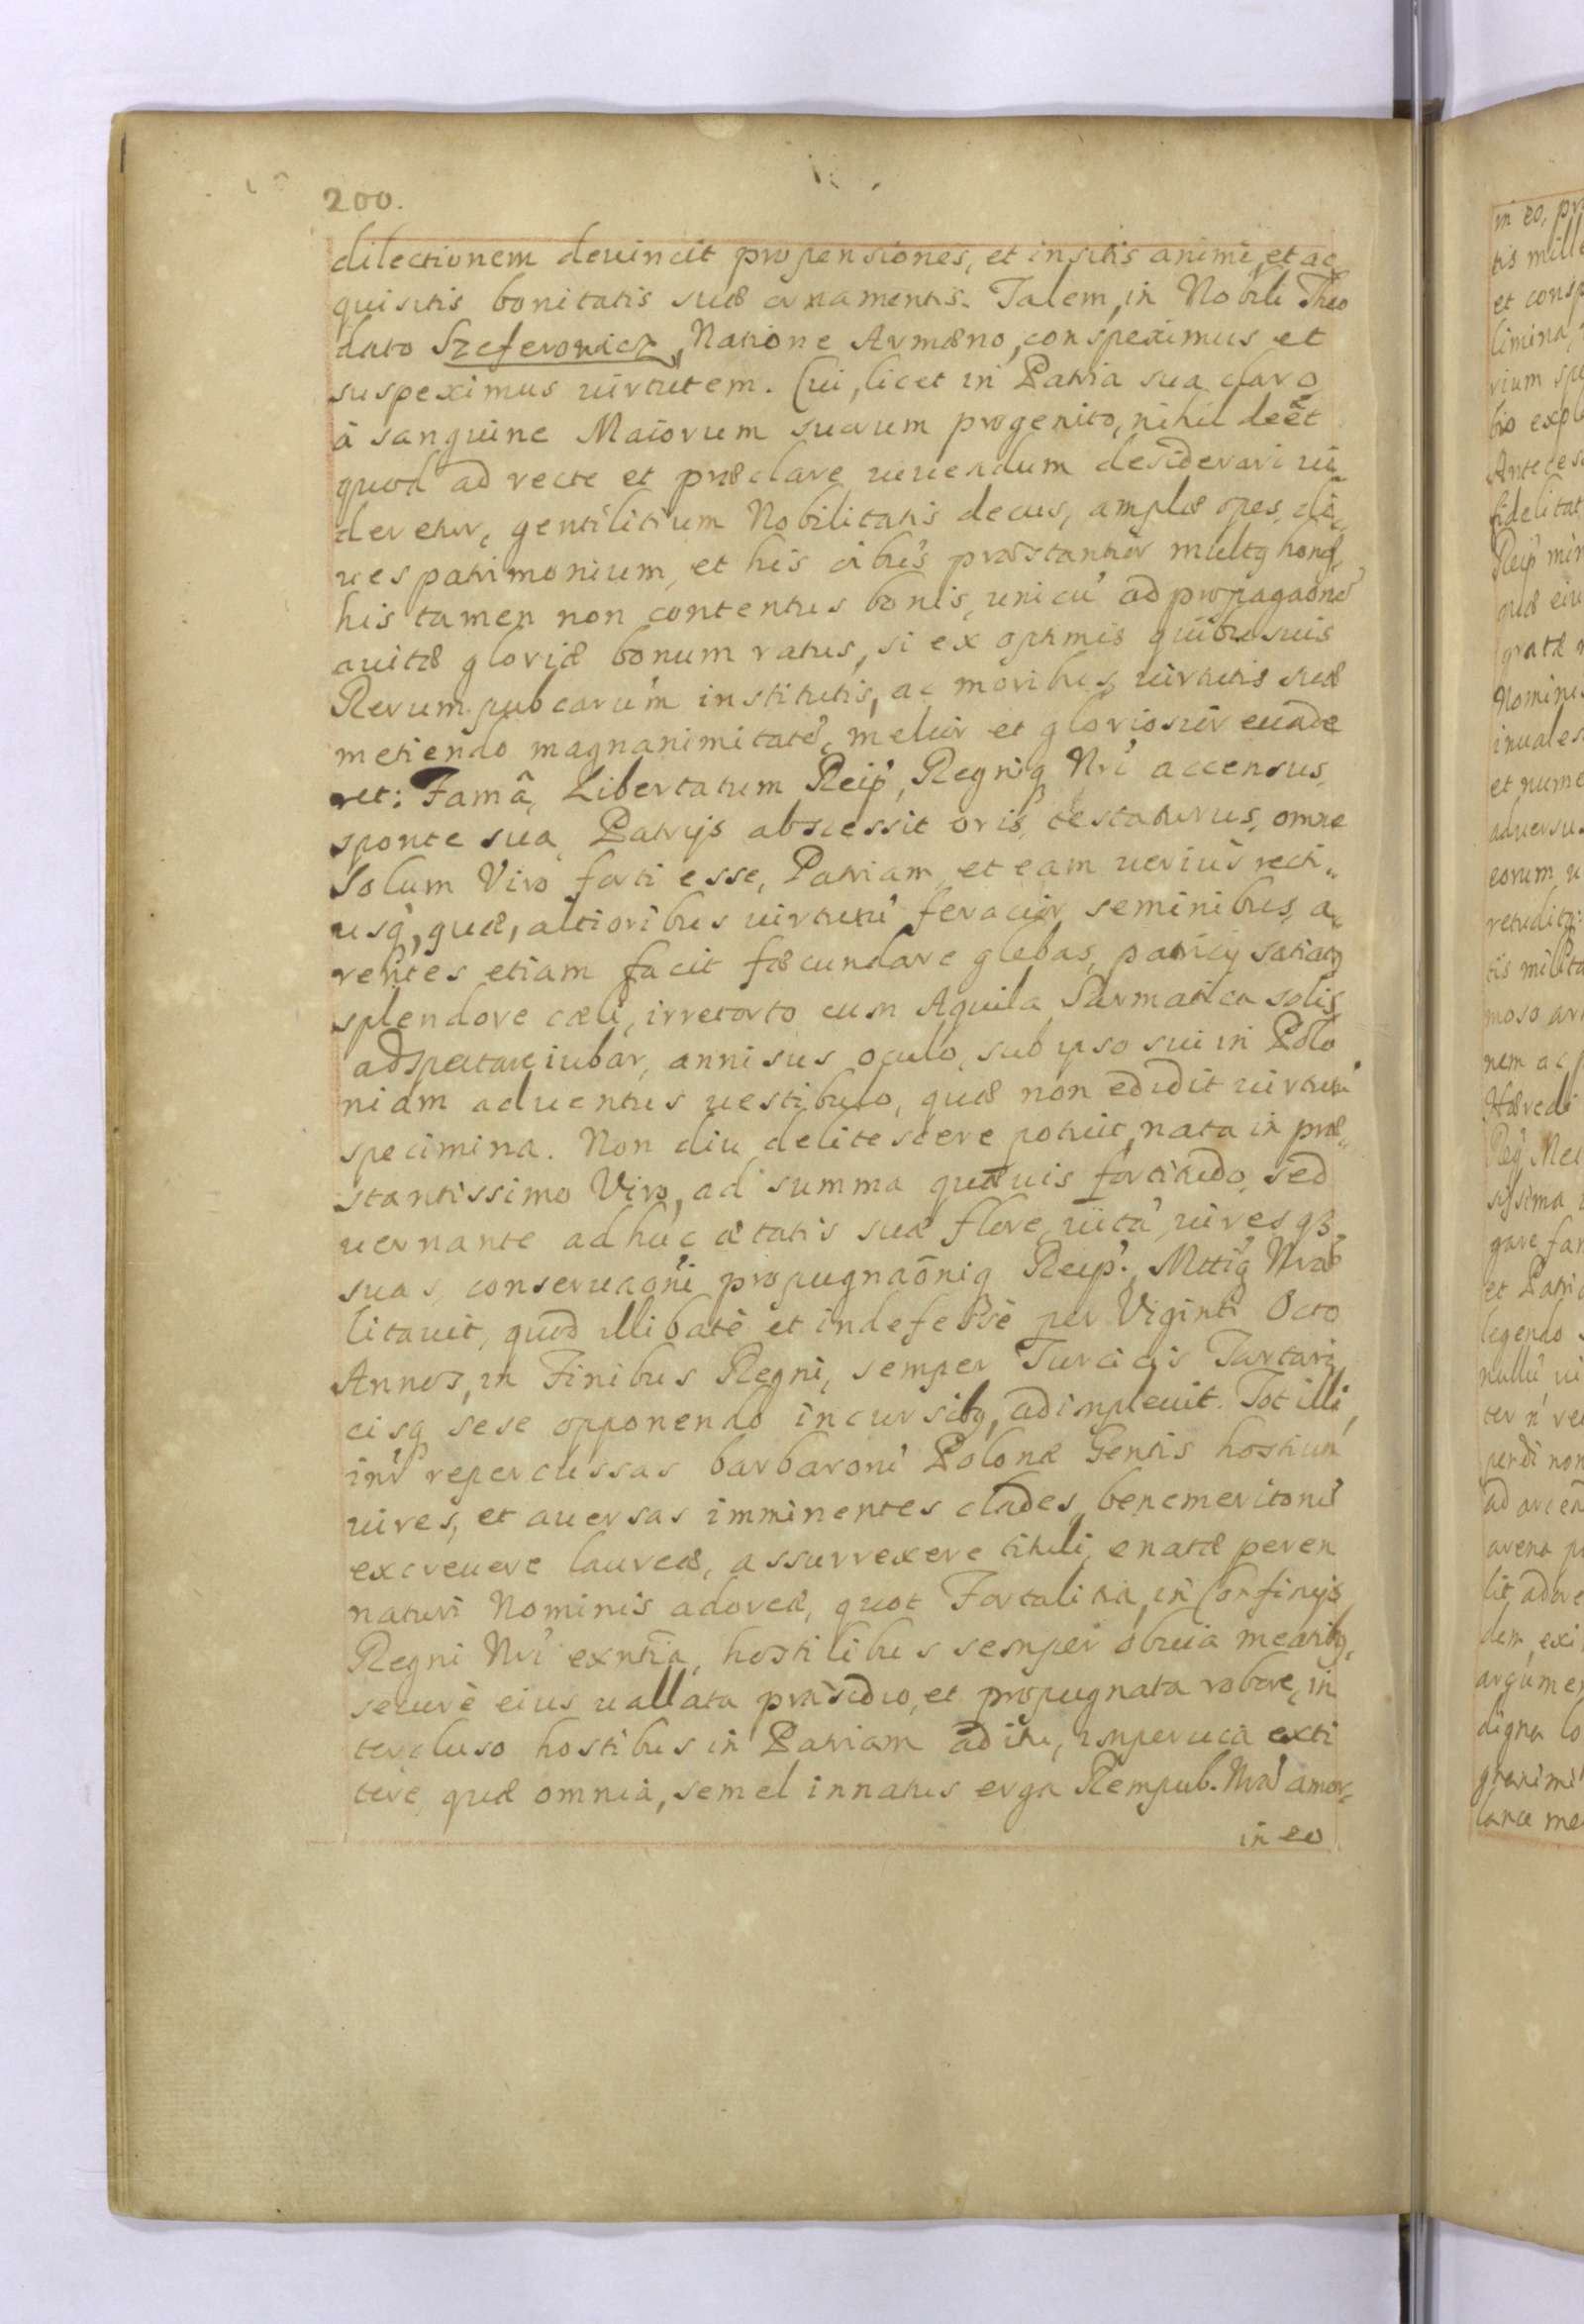 200.
dilectionem deuincit propensiones, et insitis animi, et ac
quisitis bonitatis suæ ornamentis. Talem, in Nobili Theo
dato Szeferowicz, Natione Armæno, conspeximus et
suspeximus uirtutem. Cui, licet in Patria sua claro
à sanguine Maiorum suorum progenito, nihil deêt
quod ad recte et præclare uiuendum desiderari ui-
deretur, gentilitium Nobilitatis decus, amplæ opes, di-
ues patrimonium, et his oibus præstantior multq honos,
his tamen non contentus bonis, unicu' ad propagaone'
auitæ gloriæ bonum ratus, si ex optimis quibusuis
Rerum pubcarum institutis, ac moribus, uirtutis suæ
metiendo magnanimitate', melior et gloriosior euade
ret: Famâ, Libertatum Reip', Regniq Nri' accensus,
sponte sua, Patrijs abscessit oris, testaturus, omne
Solum Viro forti esse, Patriam, et eam uerius recti-
usq', quæ, altioribus uirtutu' feracior seminibus, a-
rentes etiam facit fæcundare glebas, patricij satiatq
splendore cæli, irretorto cum Aquila Sarmatica solis
adspectare iubar, annisus oculo, sub ipso sui in Polo
niam aduentus uestibulo, quæ non edidit uirtutu'
specimina. Non diu delitescere potuit, nata in præ-
stantissimo Viro, ad summa quæuis fortitudo, sed
uernante adhuc ætatis suæ flore, uita', uiresq3
suas, conseruaoni propugnaōniq Reip'. Mttiq Nræ
litauit, quod illibatè et indefessè per Viginti Octo
Annos, in Finibus Regni, semper Turcicis Tartari
cisq sese opponendo incursibq, adimpleuit. Tot illi
repercussas barbaroru' Polonæ Gentis hostium
uires, et auersas imminentes clades, benemeritoru'
excreuere laureæ, assurrexere tituli, enatæ peren
naturi Nominis adoreæ, quot Fortalitia, in Confinijs
Regni Nri' exntia, hostilibus semper obuia meatibq,
securè eius uallata præsidio, et propugnata robore, in
tercluso hostibus in Patriam aditu, imperuia exti
tere quæ omnia, semel innatus erga Rempub. Nra' amor,
in eo